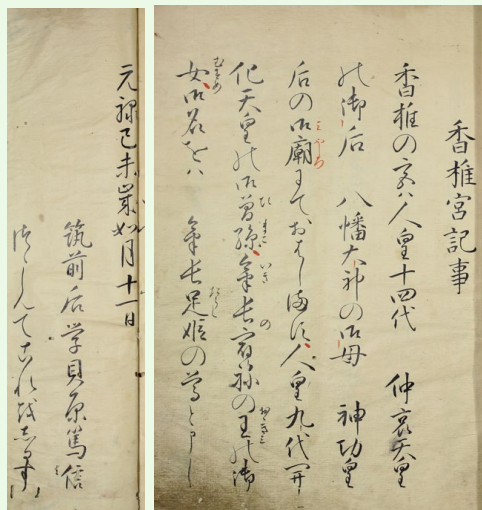 香椎宮記事
香椎の宮ハ人皇十四代 仲哀天皇
の御后 八幡大神の御母 神功皇
后の御廟にておはします人皇九代開
化天皇の御曽孫氣長宿祢の王の御
女御名をハ 氣長足姫の尊と申し
元禄己未歳如月十一日
筑前后学貝原篤信
つゝしんてこれをしるす